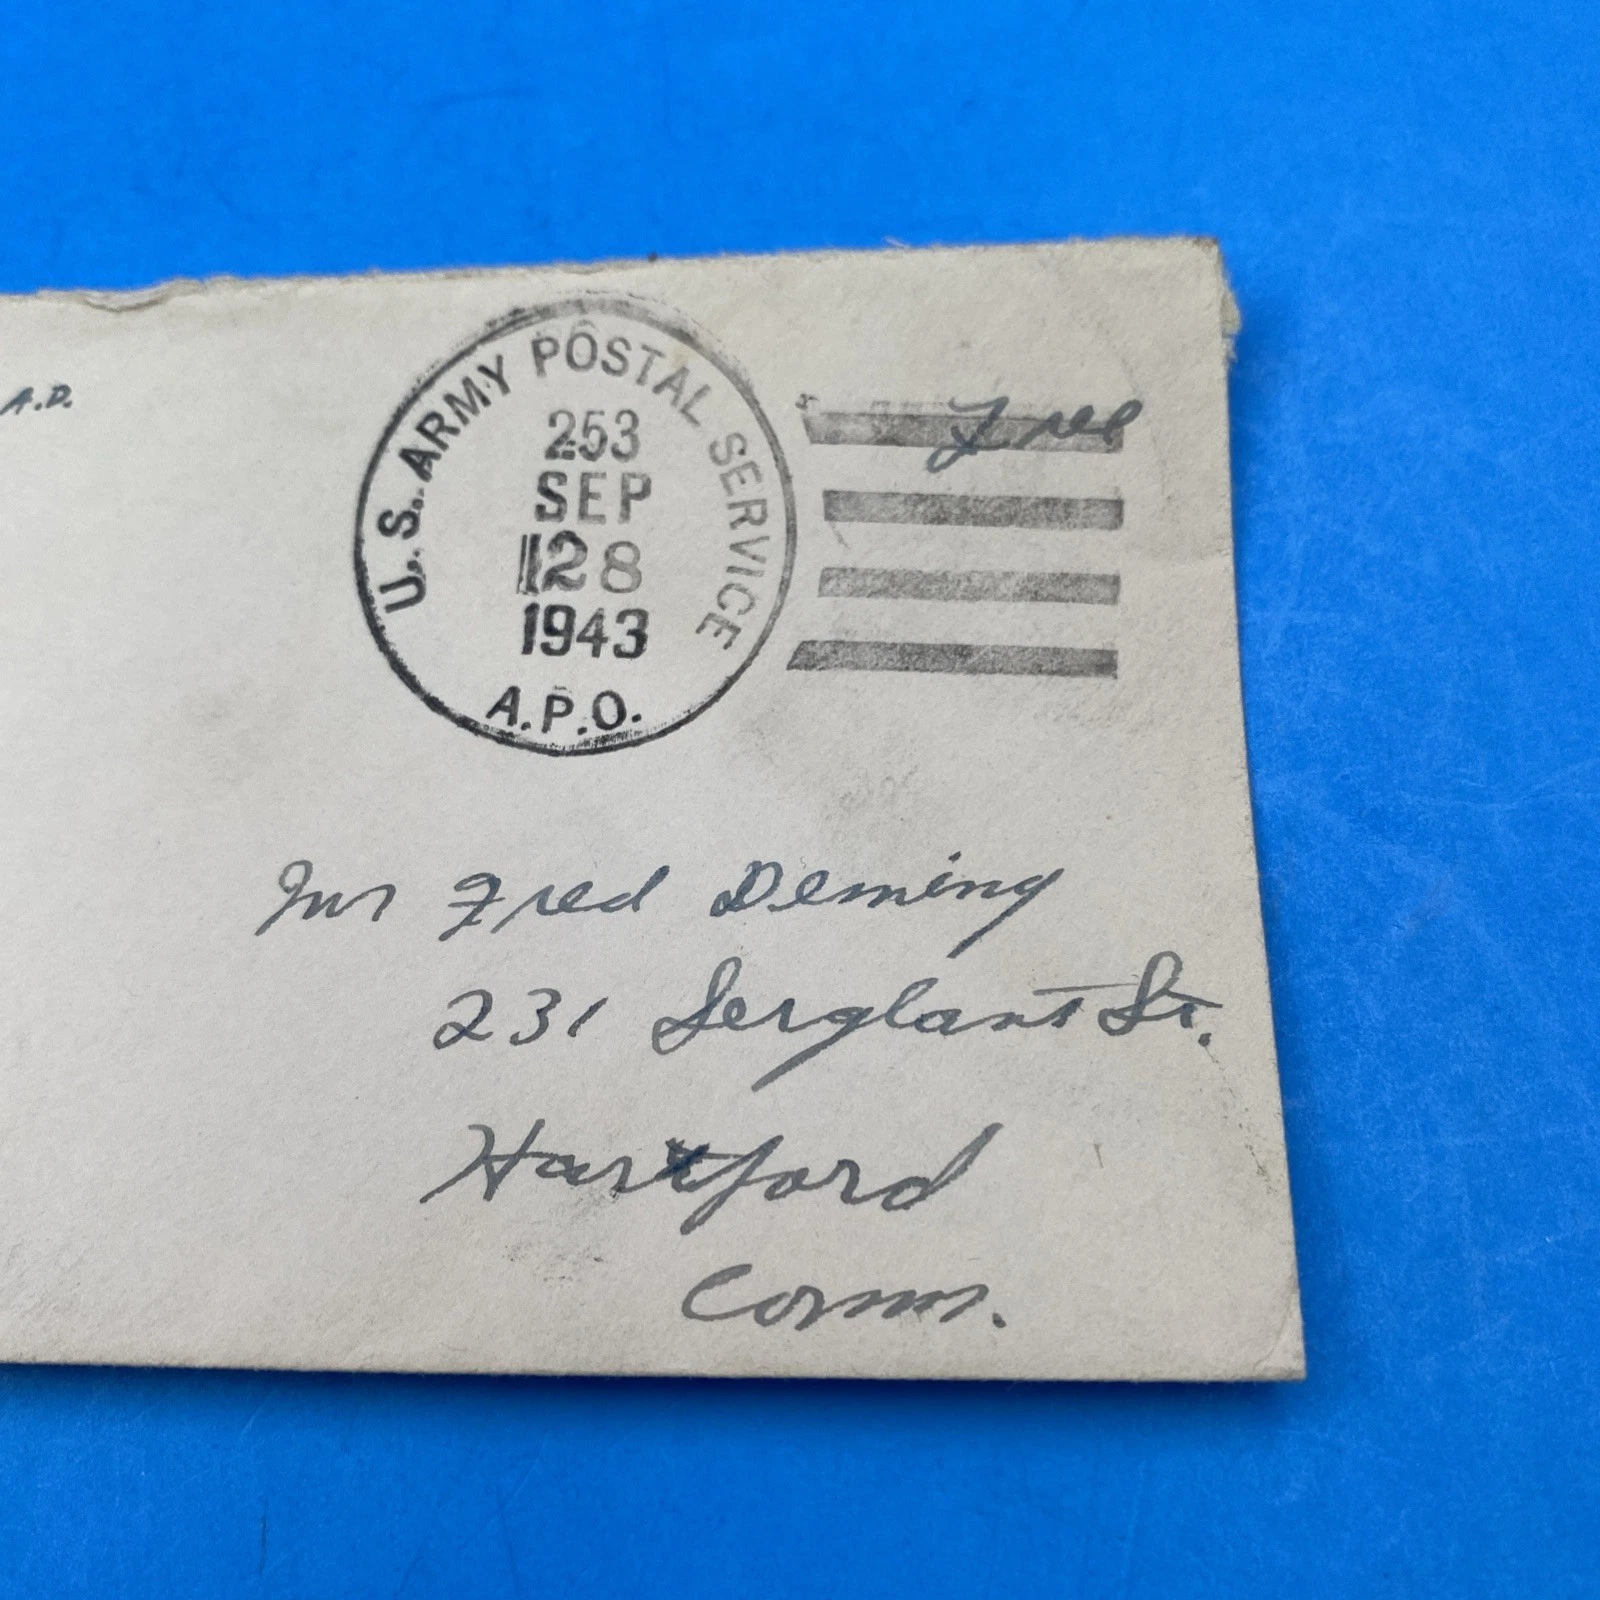 A.D.
U.S. ARMY POSTAL SERVICE
253
SEP
128
1943
A.P.O.
Free
Mr Fred Deming
231 Sergeant St.
Hartford
Conn.